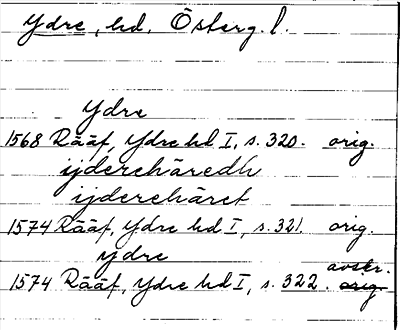 Ydre, hd. Österg. l.
Ydre
1568 Rääf, Ydre hd I, s. 320. orig.
ijderehäredh
ijderehäret
1574 Rääf, Ydre hd I, s. 321. orig.
ydre
avskr.
1574 Rääf, Ydre hd I, s. 322. orig